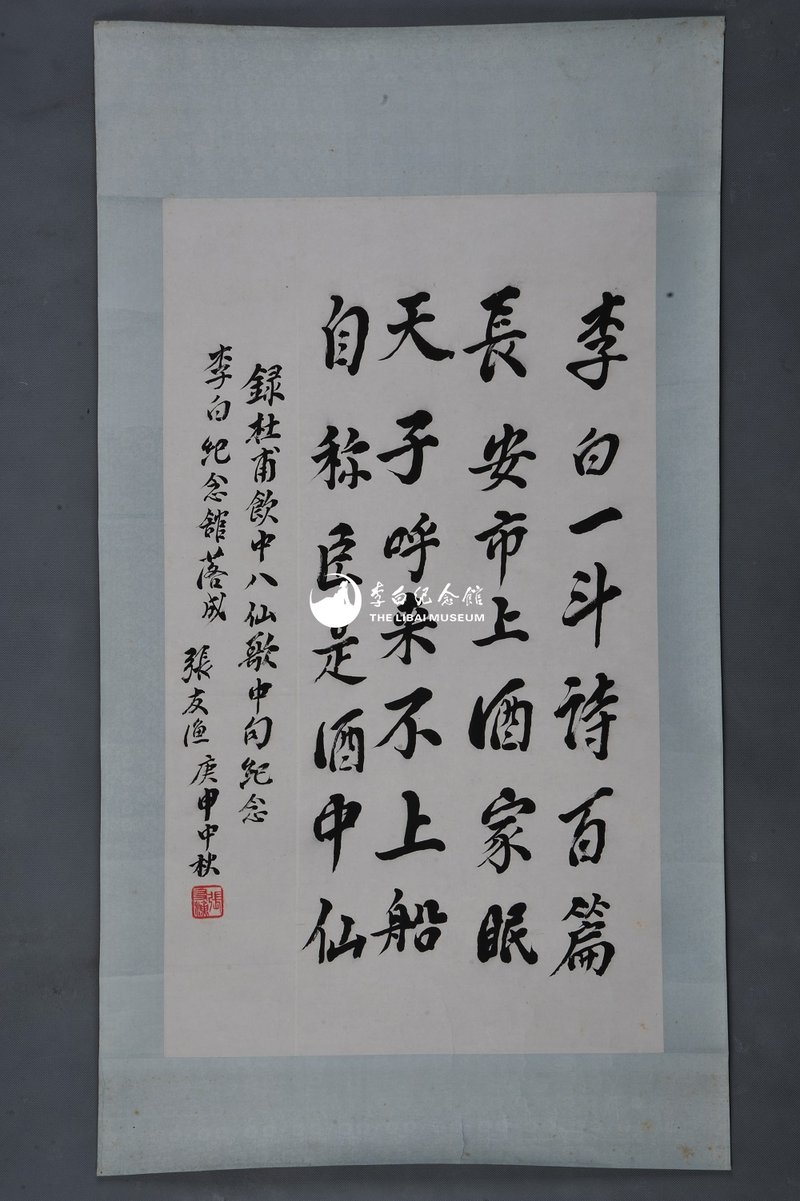 李白一斗詩百篇
長安市上酒家眠
天子呼來不上船
自称臣是酒中仙
録杜甫飲中八仙歌中句紀念
李白紀念館落成
張友漁庚申中秋
張友漁
李白纪念館
THE LIBAI MUSEUM